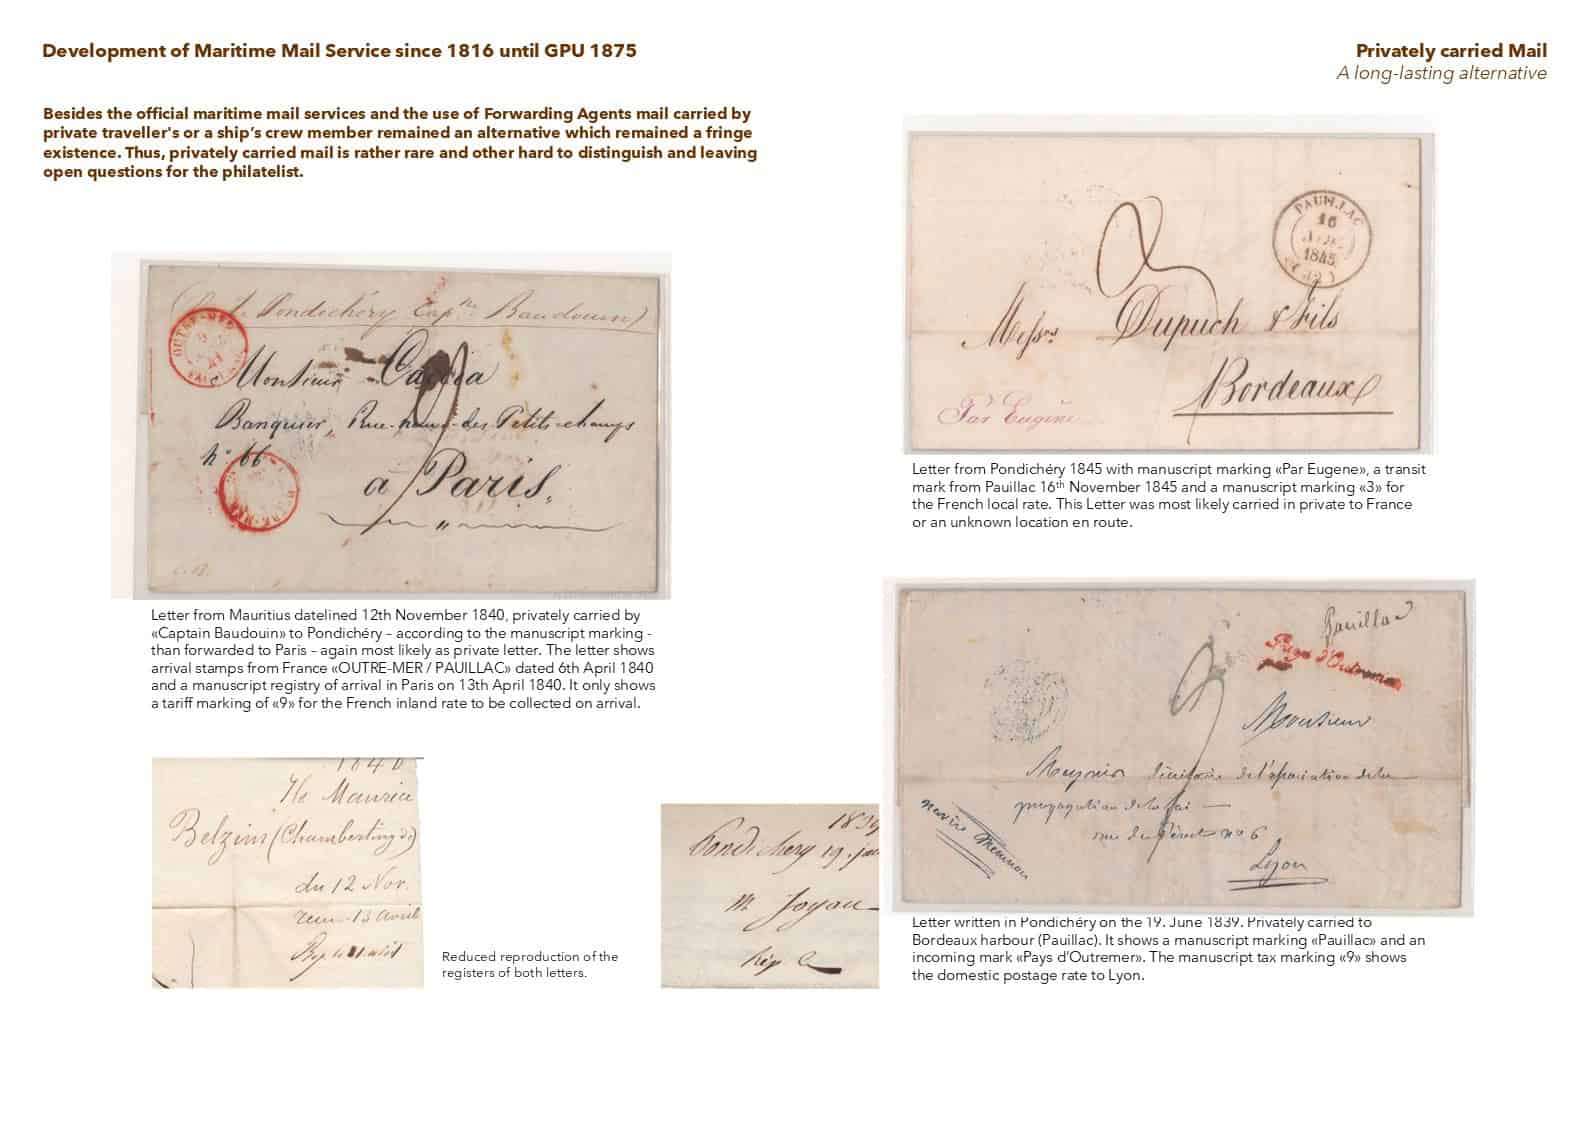 Development of Maritime Mail Service since 1816 until GPU 1875
Privately carried Mail
A long-lasting alternative
Besides the official maritime mail services and the use of Forwarding Agents mail carried by
private traveller's or a ship’s crew member remained an alternative which remained a fringe
existence. Thus, privately carried mail is rather rare and other hard to distinguish and leaving
open questions for the philatelist.
Pondichéry Capne Baudouin)
OUTRE-MER
Monsieur
Banquier, Rue-neuve-des-Petits-champs
no. 66
à Paris,
Letter from Mauritius datelined 12th November 1840, privately carried by
«Captain Baudouin» to Pondichéry – according to the manuscript marking -
than forwarded to Paris – again most likely as private letter. The letter shows
arrival stamps from France «OUTRE-MER / PAUILLAC» dated 6th April 1840
and a manuscript registry of arrival in Paris on 13th April 1840. It only shows
a tariff marking of «9» for the French inland rate to be collected on arrival.
1840
Ile Maurice
Belzim (Chambertin
du 12 Nov.
13 avril
Reduced reproduction of the
registers of both letters.
1839
Pondichery 19.
M Joyau
PAUILLAC
16
1845
Messrs Dupuch & Fils
Bordeaux
Par Eugène
Letter from Pondichéry 1845 with manuscript marking «Par Eugene», a transit
mark from Pauillac 16th November 1845 and a manuscript marking «3» for
the French local rate. This Letter was most likely carried in private to France
or an unknown location en route.
Pauillac
Pays d'Outremer
par
Monsieur
Meynier de l'association de la
propagation de la foi
rue du Péret no 6
Lyon
navire Memnon
Letter written in Pondichéry on the 19. June 1839. Privately carried to
Bordeaux harbour (Pauillac). It shows a manuscript marking «Pauillac» and an
incoming mark «Pays d’Outremer». The manuscript tax marking «9» shows
the domestic postage rate to Lyon.